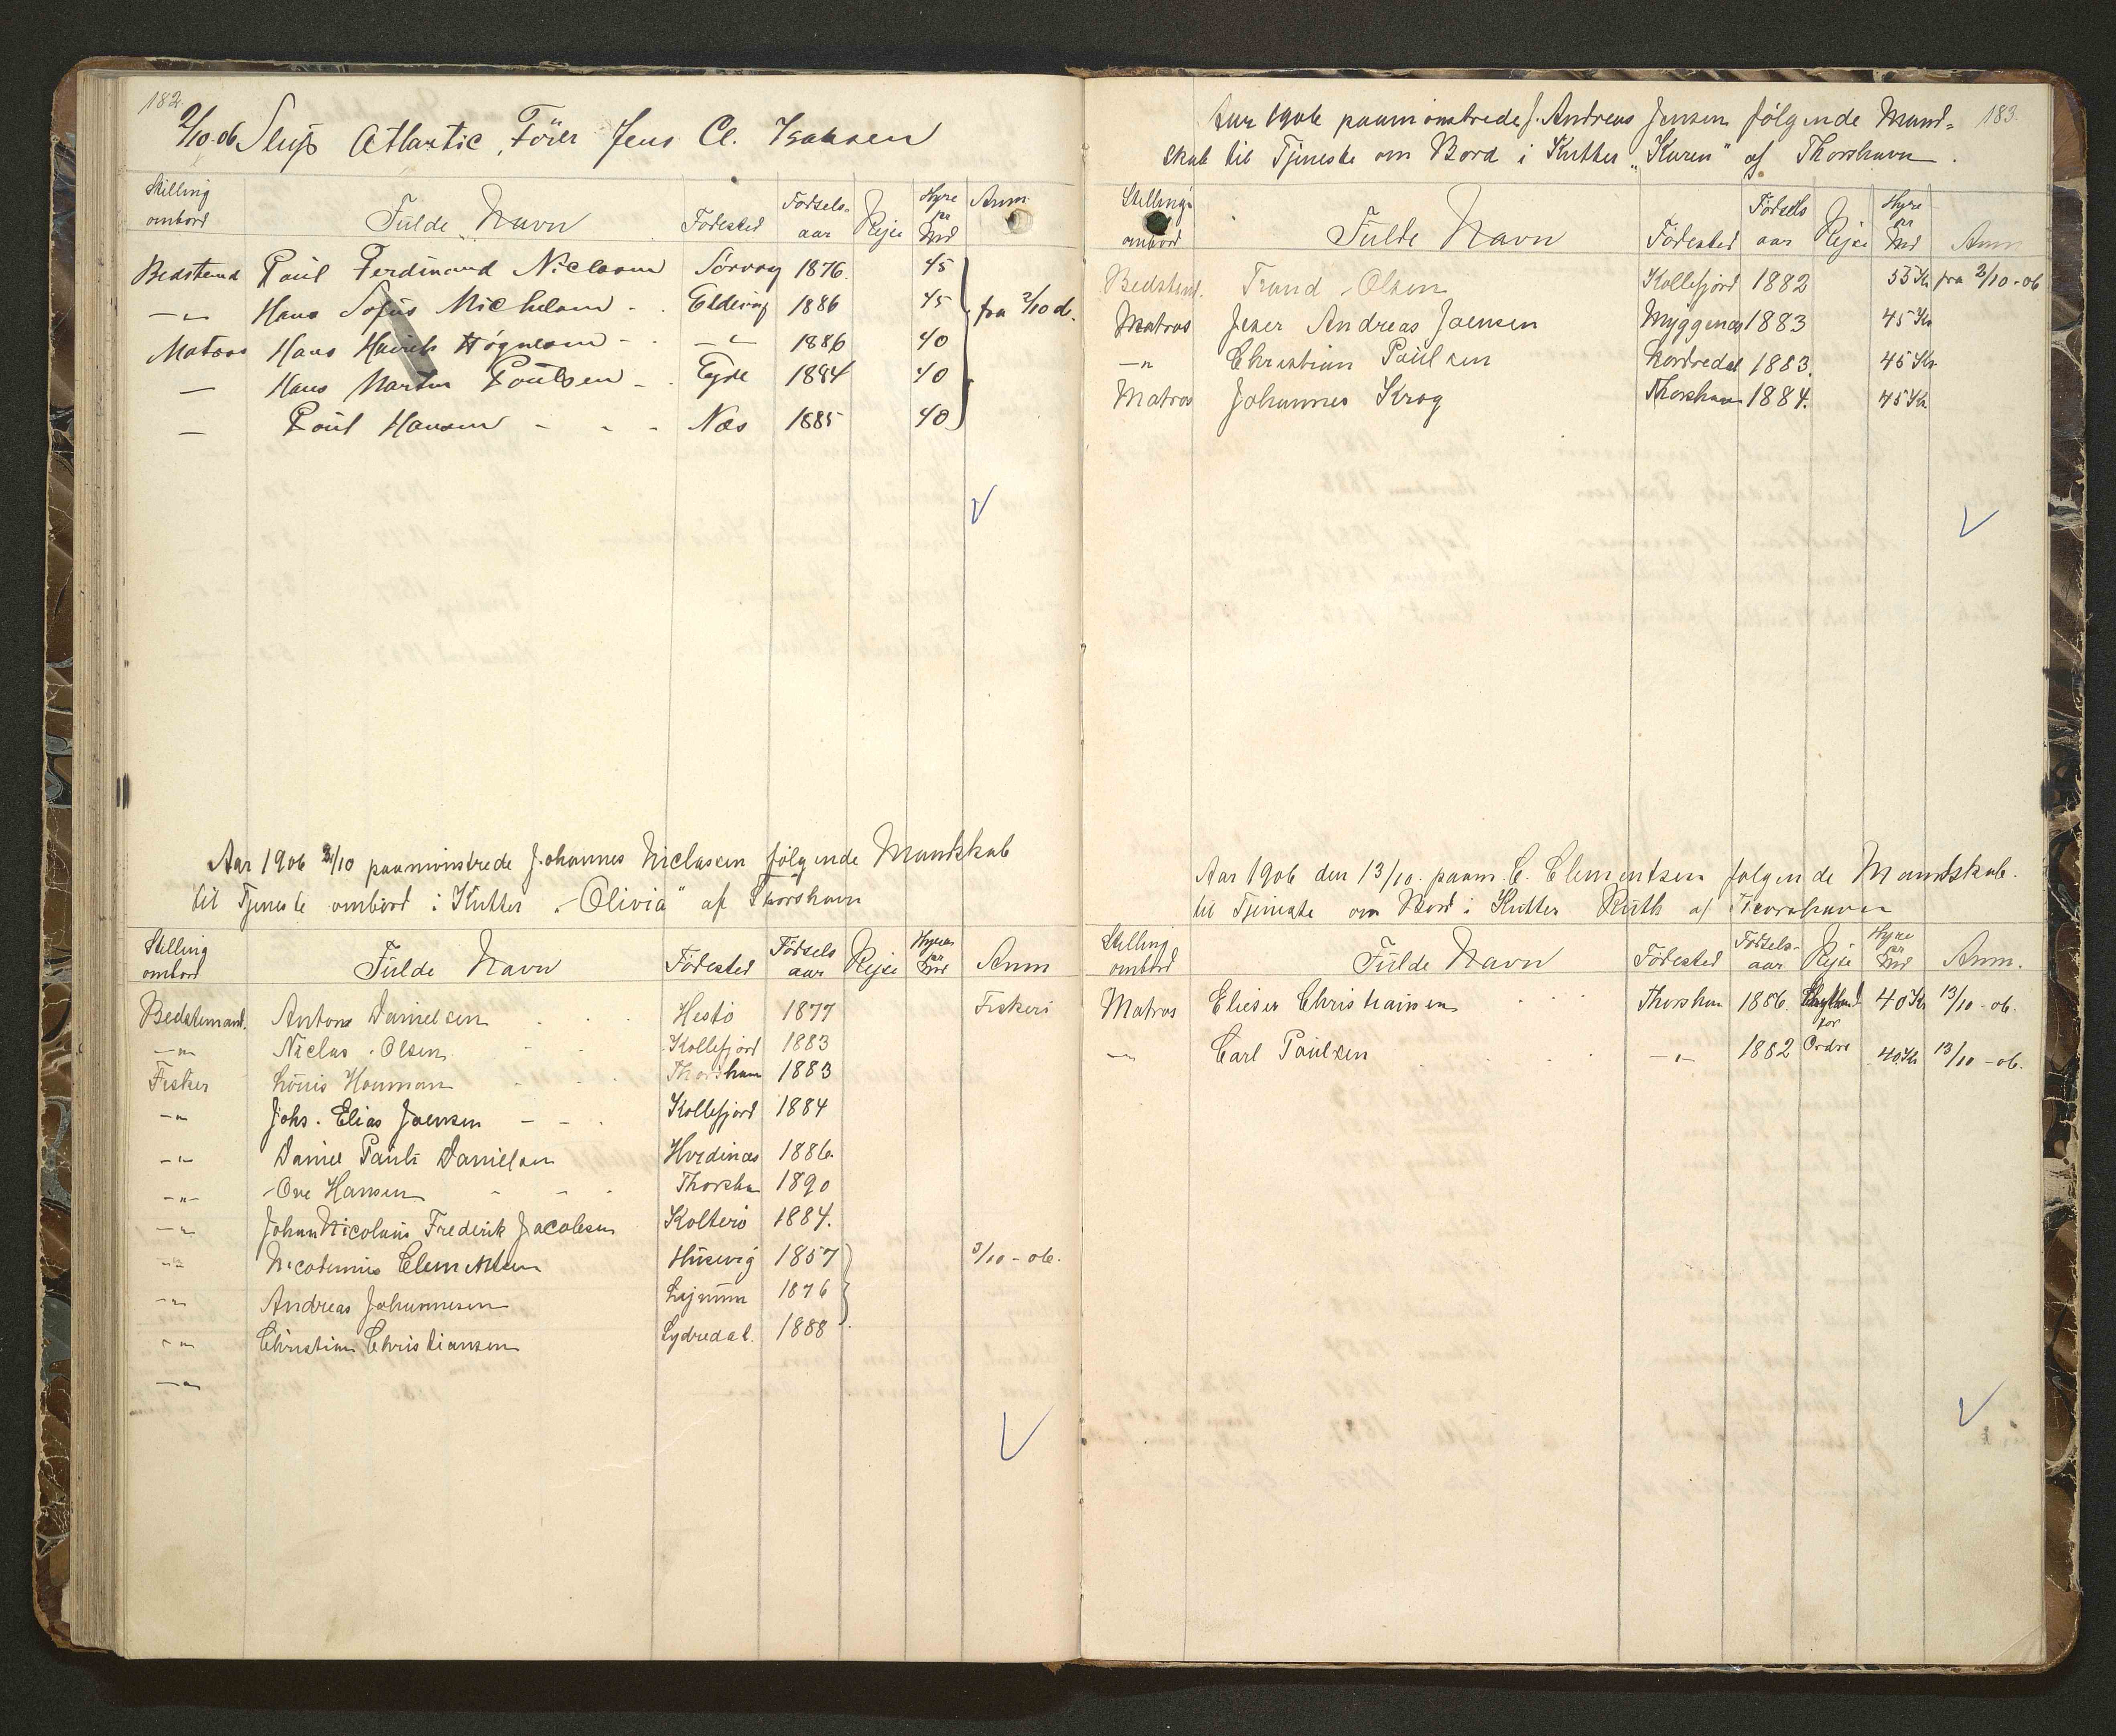 182.
2/10.06 Slup Atlantic, Förer Jens Cl. Isaksen
Stilling ombord Fulde Navn Födested Födsels-aar Rejse Hyre pr Md Anm.
Bedstemd Poul Ferdinand Niclasen Sörvog 1876. 45
-"- Hans Sofus Michelsen - - Eldevig 1886 45 fra 2/10 d.
Matros Hans Heinrik Högnesen - - -"- 1886 40
— Hans Martin Poulsen - - Eyde 1884 40
— Poul Hansen - - - Næs 1885 40
Aar 1906 3/10 paamönstrede Johannes Niclasen fölgende Mandskab
til Tjeneste ombord i Kutter "Olivia" af Thorshavn
Stilling ombord Fulde Navn Födested Födsels aar Rejse Hyre pr Md Anm
Bedstemand. Anton Danielsen Hestö 1877 Fiskeri
-"- Niclas Olsen Kollefjord 1883
Fisker Louis Houman Thorshavn 1883
-"- Johs. Elias Joensen - - Kollefjord 1884
-"- Daniel Pauli Danielsen Hvidenæs 1886.
-"- Ove Hansen - - - Thorshn 1890
-"- Johan Nicolaus Frederik Jacobsen Kolterö 1884.
-"- Nicodemus Clementsen Husevig 1857 3/10-06.
-"- Andreas Johannesen Lejnum 1876
-"- Christian Christiansen Lydredal. 1888
-"-
183.
Aar 1906 paamönstrede J. Andreas Jensen fölgende Mand=
skab til Tjeneste om Bord i Kutter "Karen" af Thorshavn.
Stilling ombord Fulde Navn Födested Födsels aar Rejse Hyre pr Md Anm
Bedstem. Trond Olsen Kollefjord 1882 55 Kr fra 2/10-06
Matros Jeser Andreas Joensen Myggenæs 1883 45 Kr
-"- Christian Paulsen Nordredal 1883. 45 Kr
Matros Johannes Krog Thorshavn 1884. 45 Kr
Aar 1906 den 13/10. paam. C. Clementsen fölgende Mandskab.
til Tjeneste om Bord i Kutter Ruth af Thorshavn
Stilling ombord Fulde Navn Födested Födsels-aar Rejse Hyre pr Md Anm.
Matros Elieser Christiansen Thorshvn 1886. for 40 Kr 13/10-06.
-"- Carl Paulsen -"- 1882 Ordre 40 Kr 13/10-06.